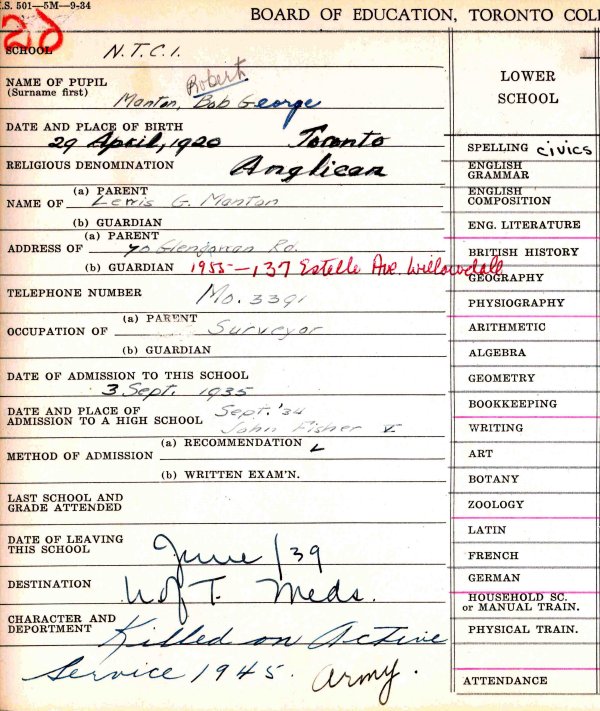 .S. 501—5M—9-34
BOARD OF EDUCATION, TORONTO COL
26
SCHOOL N.T.C.I.
NAME OF PUPIL
(Surname first)
Robert
Manton, Bob George
DATE AND PLACE OF BIRTH
29 April, 1920 Toronto
RELIGIOUS DENOMINATION Anglican
(a) PARENT
NAME OF Lewis G. Manton
(b) GUARDIAN
(a) PARENT
ADDRESS OF 70 Glengowan Rd.
(b) GUARDIAN 1955—137 Estelle Ave. Willowdale
TELEPHONE NUMBER Mo. 3391
(a) PARENT
OCCUPATION OF Surveyor
(b) GUARDIAN
DATE OF ADMISSION TO THIS SCHOOL
3 Sept. 1935
DATE AND PLACE OF
ADMISSION TO A HIGH SCHOOL
Sept. '34
John Fisher V.
(a) RECOMMENDATION
METHOD OF ADMISSION
(b) WRITTEN EXAM'N.
LAST SCHOOL AND
GRADE ATTENDED
DATE OF LEAVING
THIS SCHOOL
June /39
DESTINATION U of T. Meds.
CHARACTER AND
DEPORTMENT
Killed on Active
Service 1945. Army.
LOWER
SCHOOL
SPELLING civics
ENGLISH
GRAMMAR
ENGLISH
COMPOSITION
ENG. LITERATURE
BRITISH HISTORY
GEOGRAPHY
PHYSIOGRAPHY
ARITHMETIC
ALGEBRA
GEOMETRY
BOOKKEEPING
WRITING
ART
BOTANY
ZOOLOGY
LATIN
FRENCH
GERMAN
HOUSEHOLD SC.
or MANUAL TRAIN.
PHYSICAL TRAIN.
ATTENDANCE